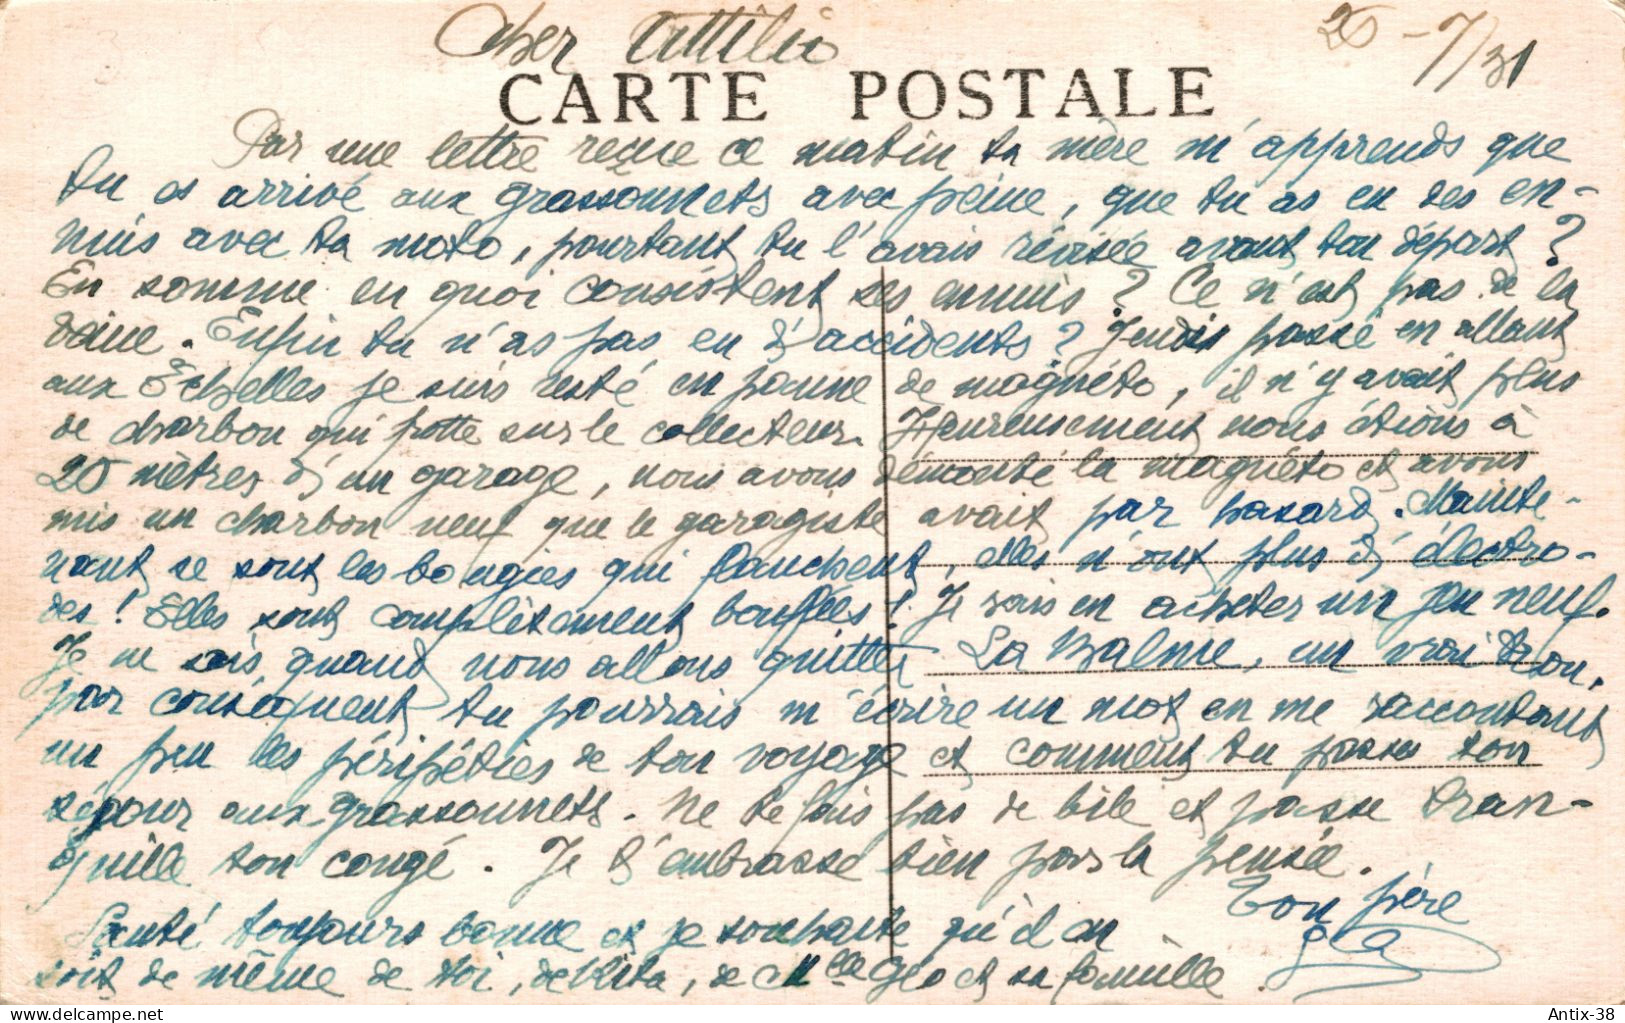 Cher Attilio 20-7/31
CARTE POSTALE
Par une lettre reçue ce matin ta mère m'apprends que
tu es arrivé aux grassonnets avec peine, que tu as eu des en-
nuis avec ta moto, pourtant tu l'avais révisée avant ton départ ?
En somme en quoi consistent ses ennuis ? Ce n'est pas de la
veine. Enfin tu n'as pas eu d'accidents ? Jeudi passé en allant
aux Echelles je suis resté en panne de magnéto, il n'y avait plus
de charbon qui frotte sur le collecteur. Heureusement nous étions à
20 mètres d'un garage, nous avons démonté la magnéto et avons
mis un charbon neuf que le garagiste avait par hasard. Mainte-
nant ce sont les bougies qui flanchent, elles n'ont plus d'électro-
des ! Elles sont complètement bouffées ! Je vais en acheter un jeu neuf.
Je ne sais quand nous allons quitter La Balme, un vrai trou.
par conséquent tu pourrais m'écrire un mot en me racontant
un peu les péripéties de ton voyage et comment tu passes ton
séjour aux grassonnets. Ne te fais pas de bile et passe tran-
quille ton congé. Je t'embrasse bien par la pensée.
Ton père
Santé toujours bonne et je souhaite qu'il en
soit de même de toi, de Rita, de Mlle Geo et sa famille.
Antix-38